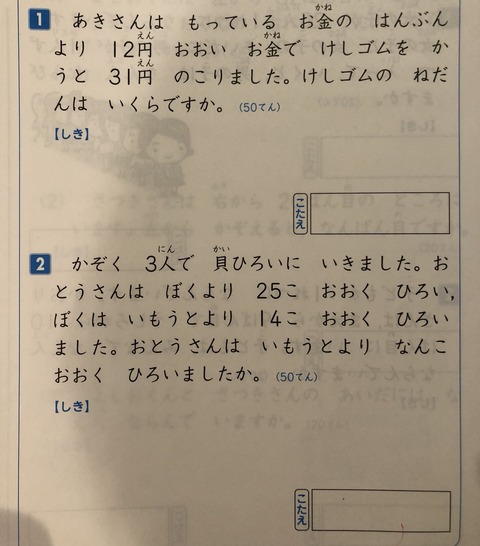 1 あきさんは もっている お金の はんぶん
かね
より 12円 おおい お金で けしゴムを か
えん かね
うと 31円 のこりました。けしゴムの ねだ
えん
んは いくらですか。(50てん)
【しき】
こたえ
2 かぞく 3人で 貝ひろいに いきました。お
にん かい
とうさんは ぼくより 25こ おおく ひろい,
ぼくは いもうとより 14こ おおく ひろい
ました。おとうさんは いもうとより なんこ
おおく ひろいましたか。(50てん)
【しき】
こたえ